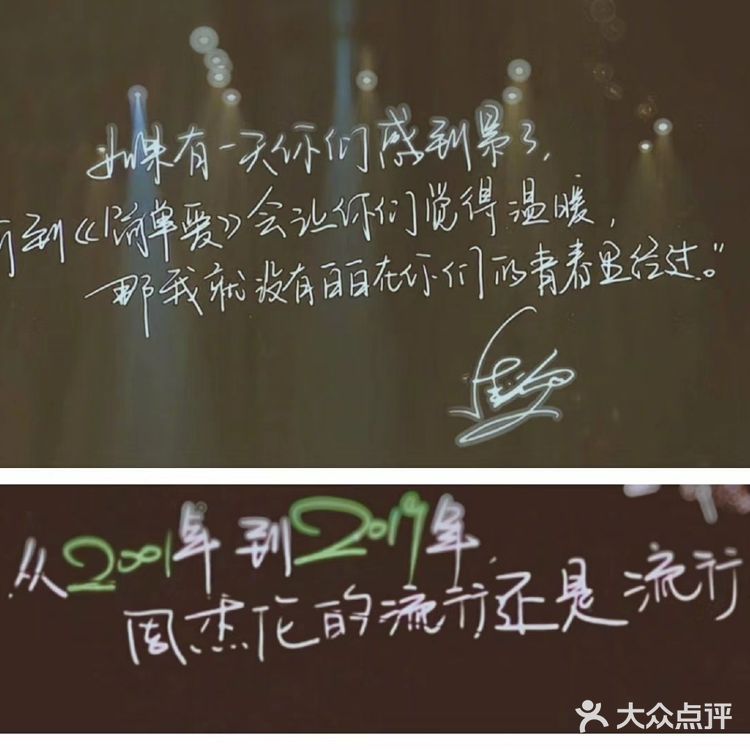 如果有一天你们感到累了，
听到《简单爱》会让你们觉得温暖，
那我就没有白白在你们的青春里经过。”
从2001年到2019年
周杰伦的流行还是流行
大众点评